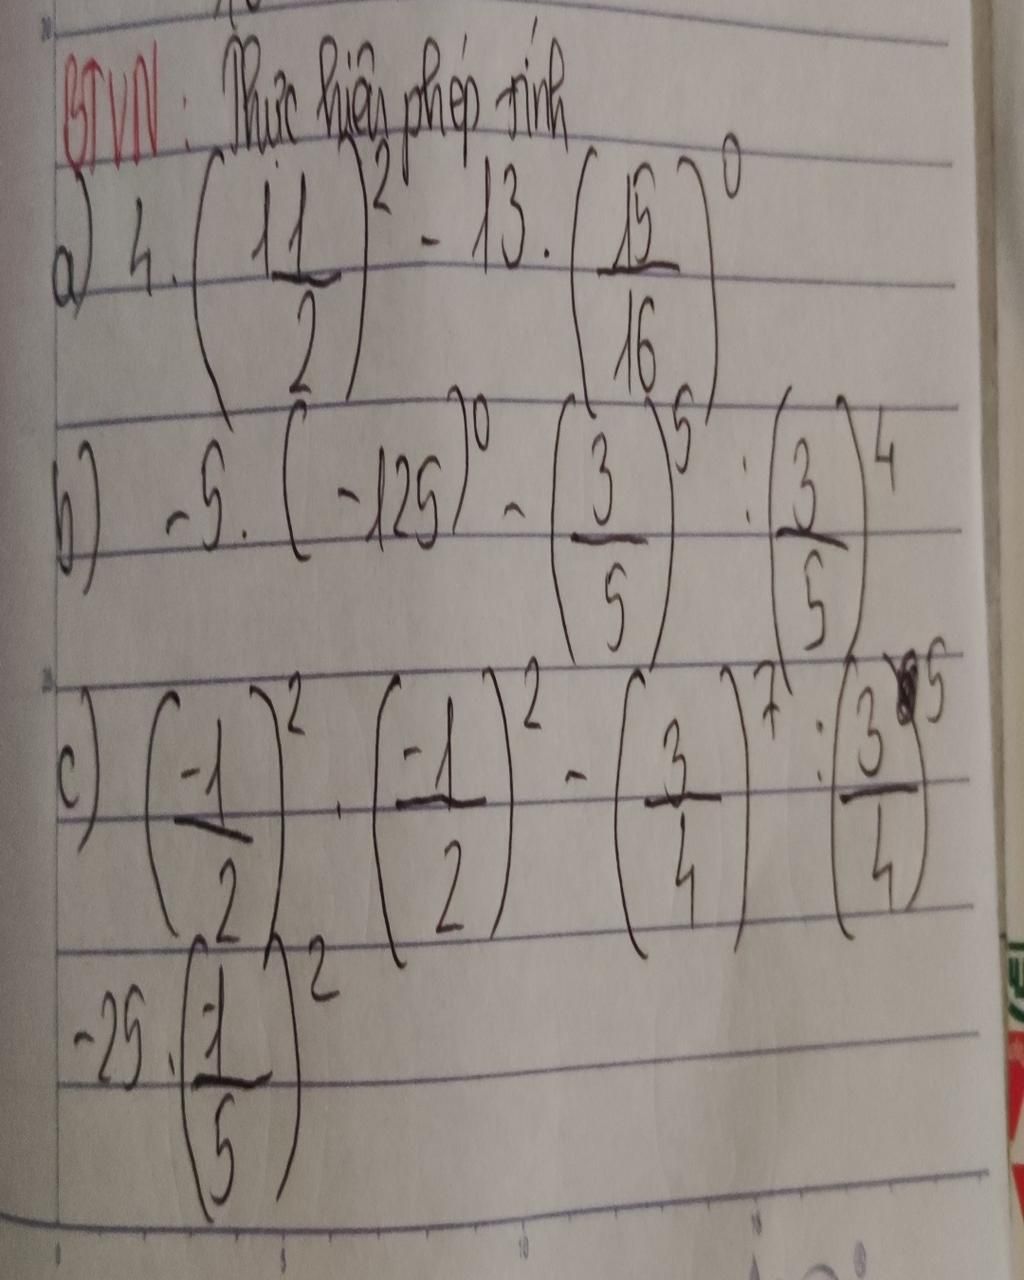 BTVN: Thực hiện phép tính
a) 4. (1 1/2)^2 - 13. (15/16)^0
b) -5. (-125)^0 - (3/5)^5 : (3/5)^4
c) (-1/2)^2 . (-1/2)^2 - (3/4)^7 : (3/4)^5
-25 . (-1/5)^2